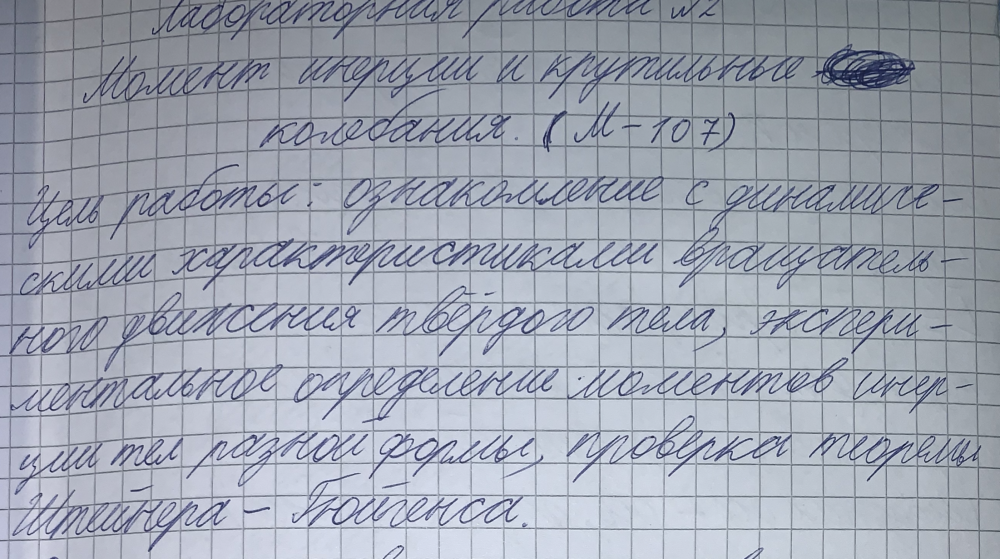 Лабораторная работа №2
Момент инерции и крутильные
колебания. (М-107)
Цель работы: ознакомление с динамиче-
скими характеристиками вращатель-
ного движения твёрдого тела, экспери-
ментальное определение моментов инер-
ции тел разной формы, проверка теоремы
Штейнера - Гюйгенса.